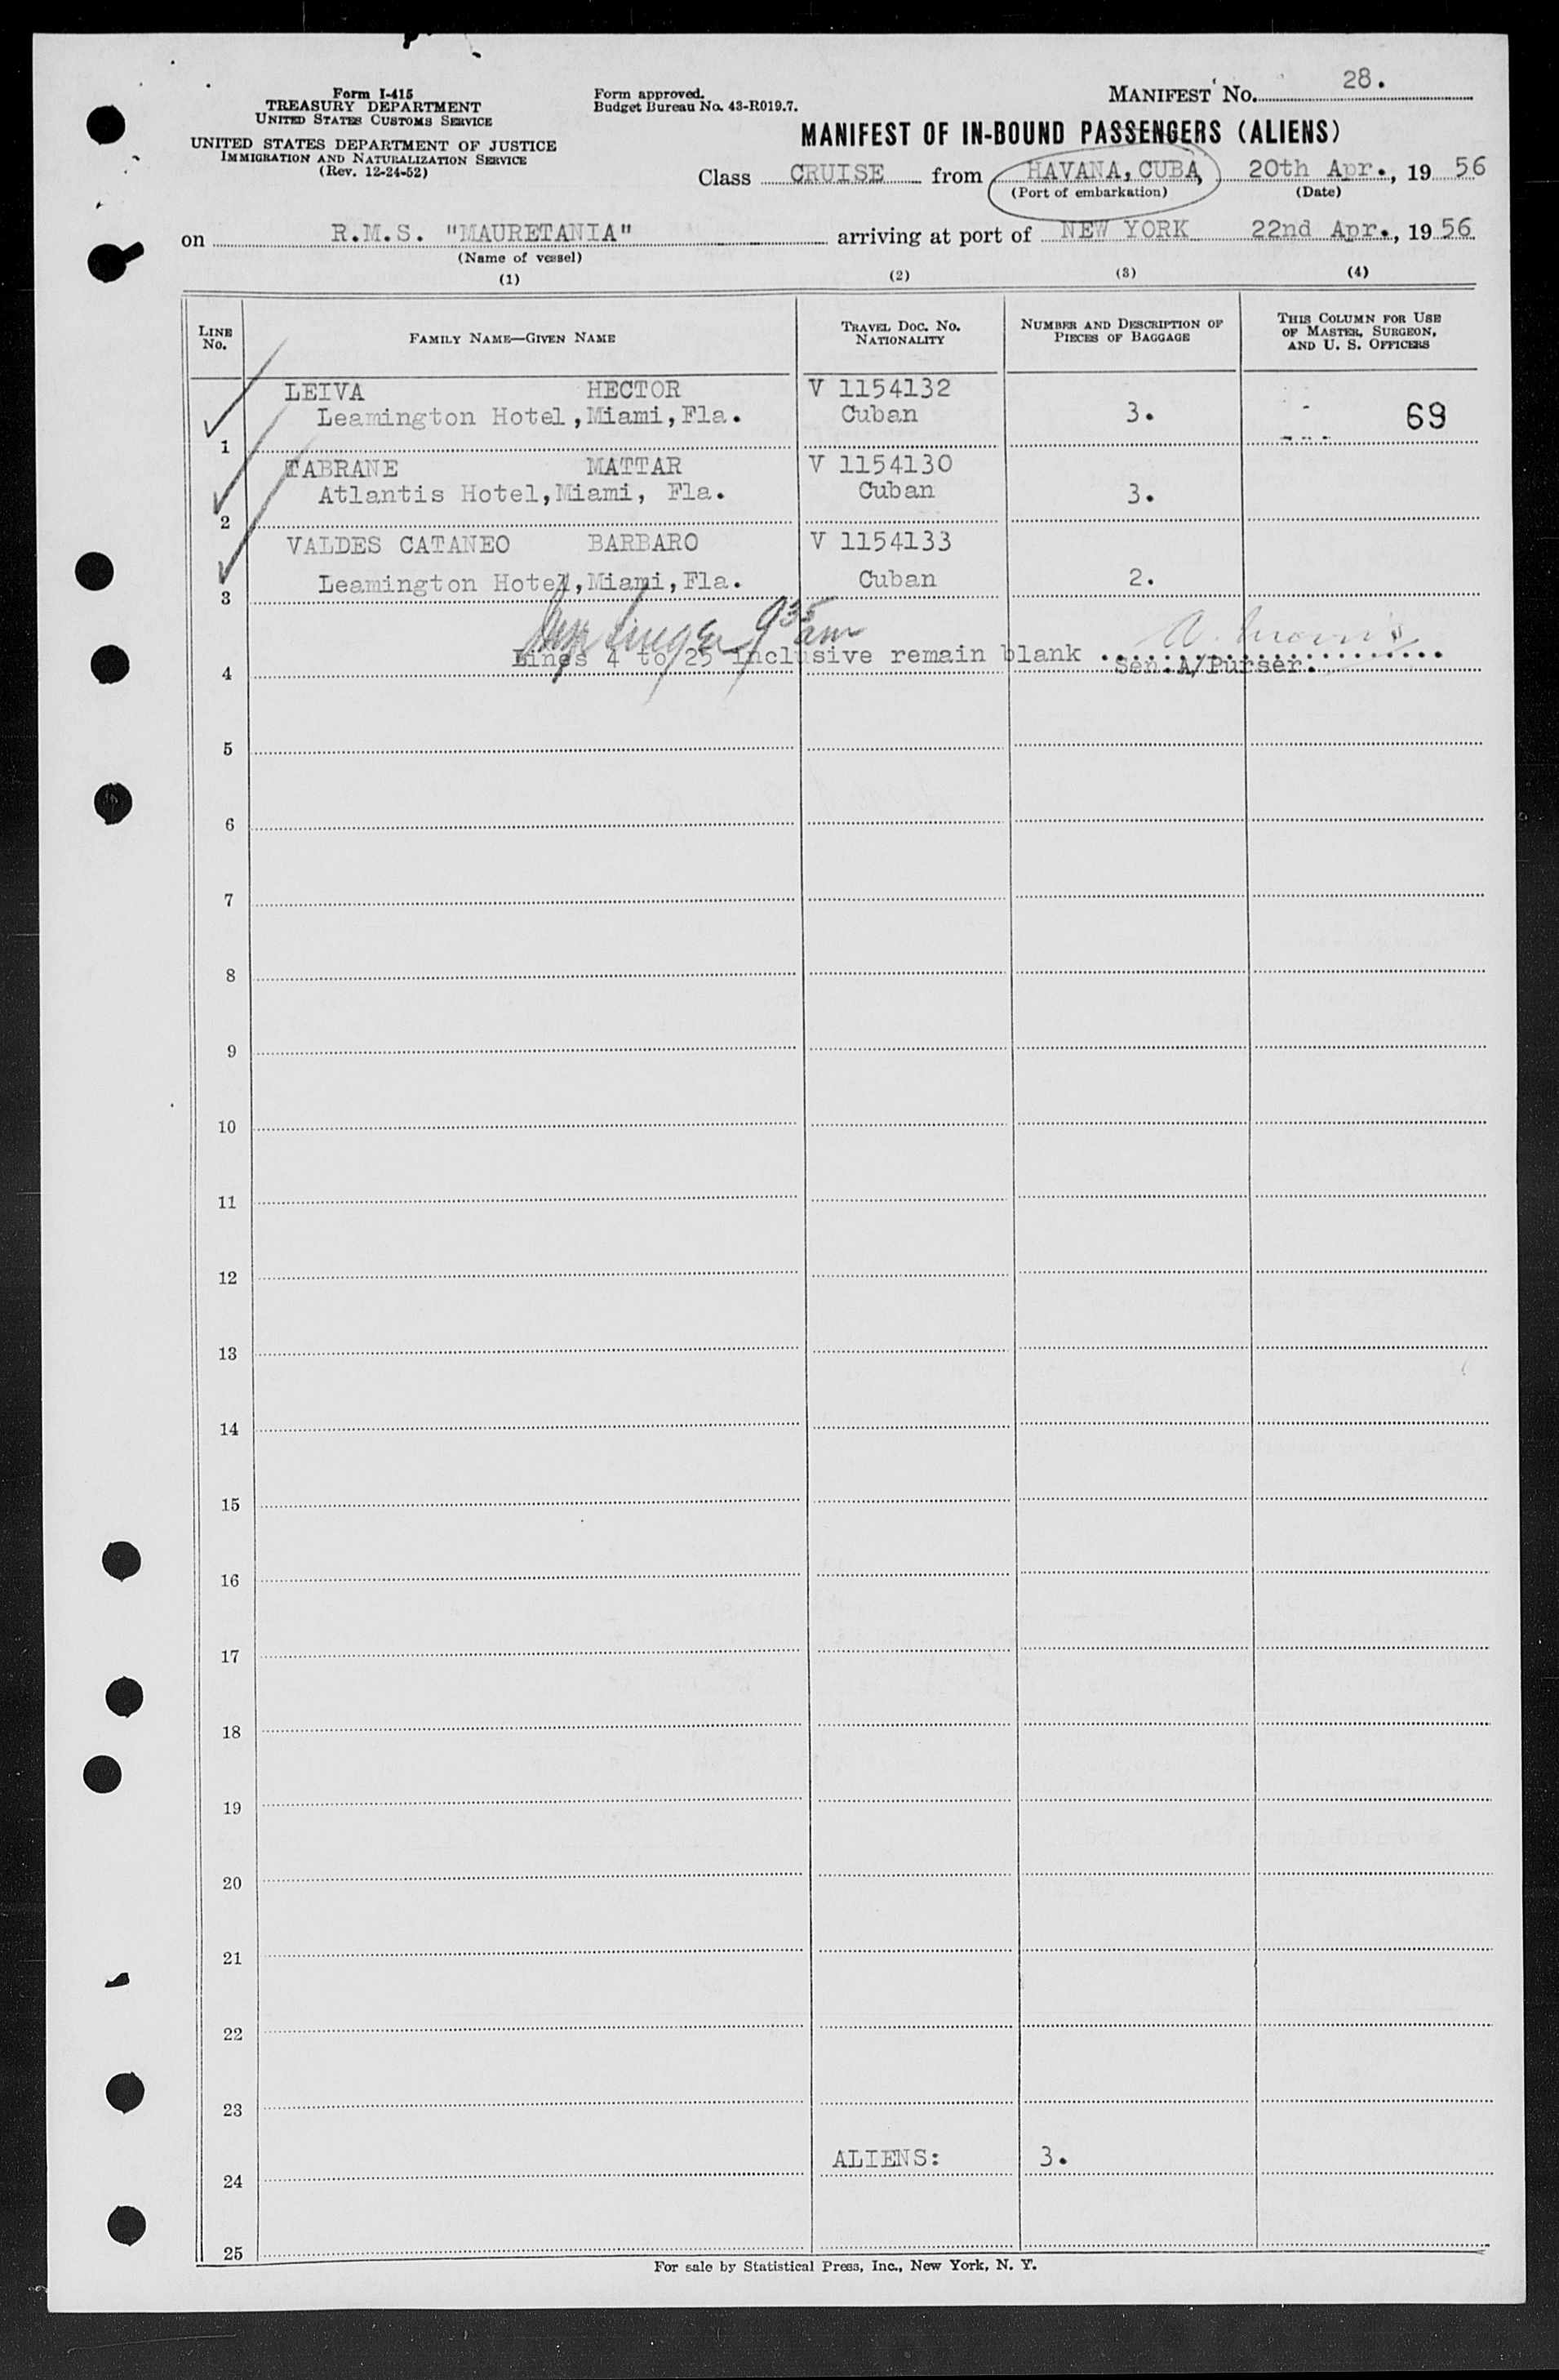 Form I-415
TREASURY DEPARTMENT
UNITED STATES CUSTOMS SERVICE
UNITED STATES DEPARTMENT OF JUSTICE
IMMIGRATION AND NATURALIZATION SERVICE
(Rev. 12-24-52)
Form approved.
Budget Bureau No. 43-R019.7.
MANIFEST No. 28.
MANIFEST OF IN-BOUND PASSENGERS (ALIENS)
Class CRUISE from HAVANA, CUBA, 20th Apr., 19 56
(Port of embarkation) (Date)
on R.M.S. "MAURETANIA" arriving at port of NEW YORK 22nd Apr., 19 56
(Name of vessel)
(1) (2) (3) (4)
LINE No. FAMILY NAME—GIVEN NAME TRAVEL DOC. No. NATIONALITY NUMBER AND DESCRIPTION OF PIECES OF BAGGAGE THIS COLUMN FOR USE OF MASTER, SURGEON, AND U. S. OFFICERS
LEIVA HECTOR V 1154132
Leamington Hotel, Miami, Fla. Cuban 3. 69
1
TABRANE MATTAR V 1154130
Atlantis Hotel, Miami, Fla. Cuban 3.
2
VALDES CATANEO BARBARO V 1154133
Leamington Hotel, Miami, Fla. Cuban 2.
3
935 am
Lines 4 to 25 inclusive remain blank
Sen. A/Purser.
4
5
6
7
8
9
10
11
12
13
14
15
16
17
18
19
20
21
22
23
ALIENS: 3.
24
25
For sale by Statistical Press, Inc., New York, N. Y.